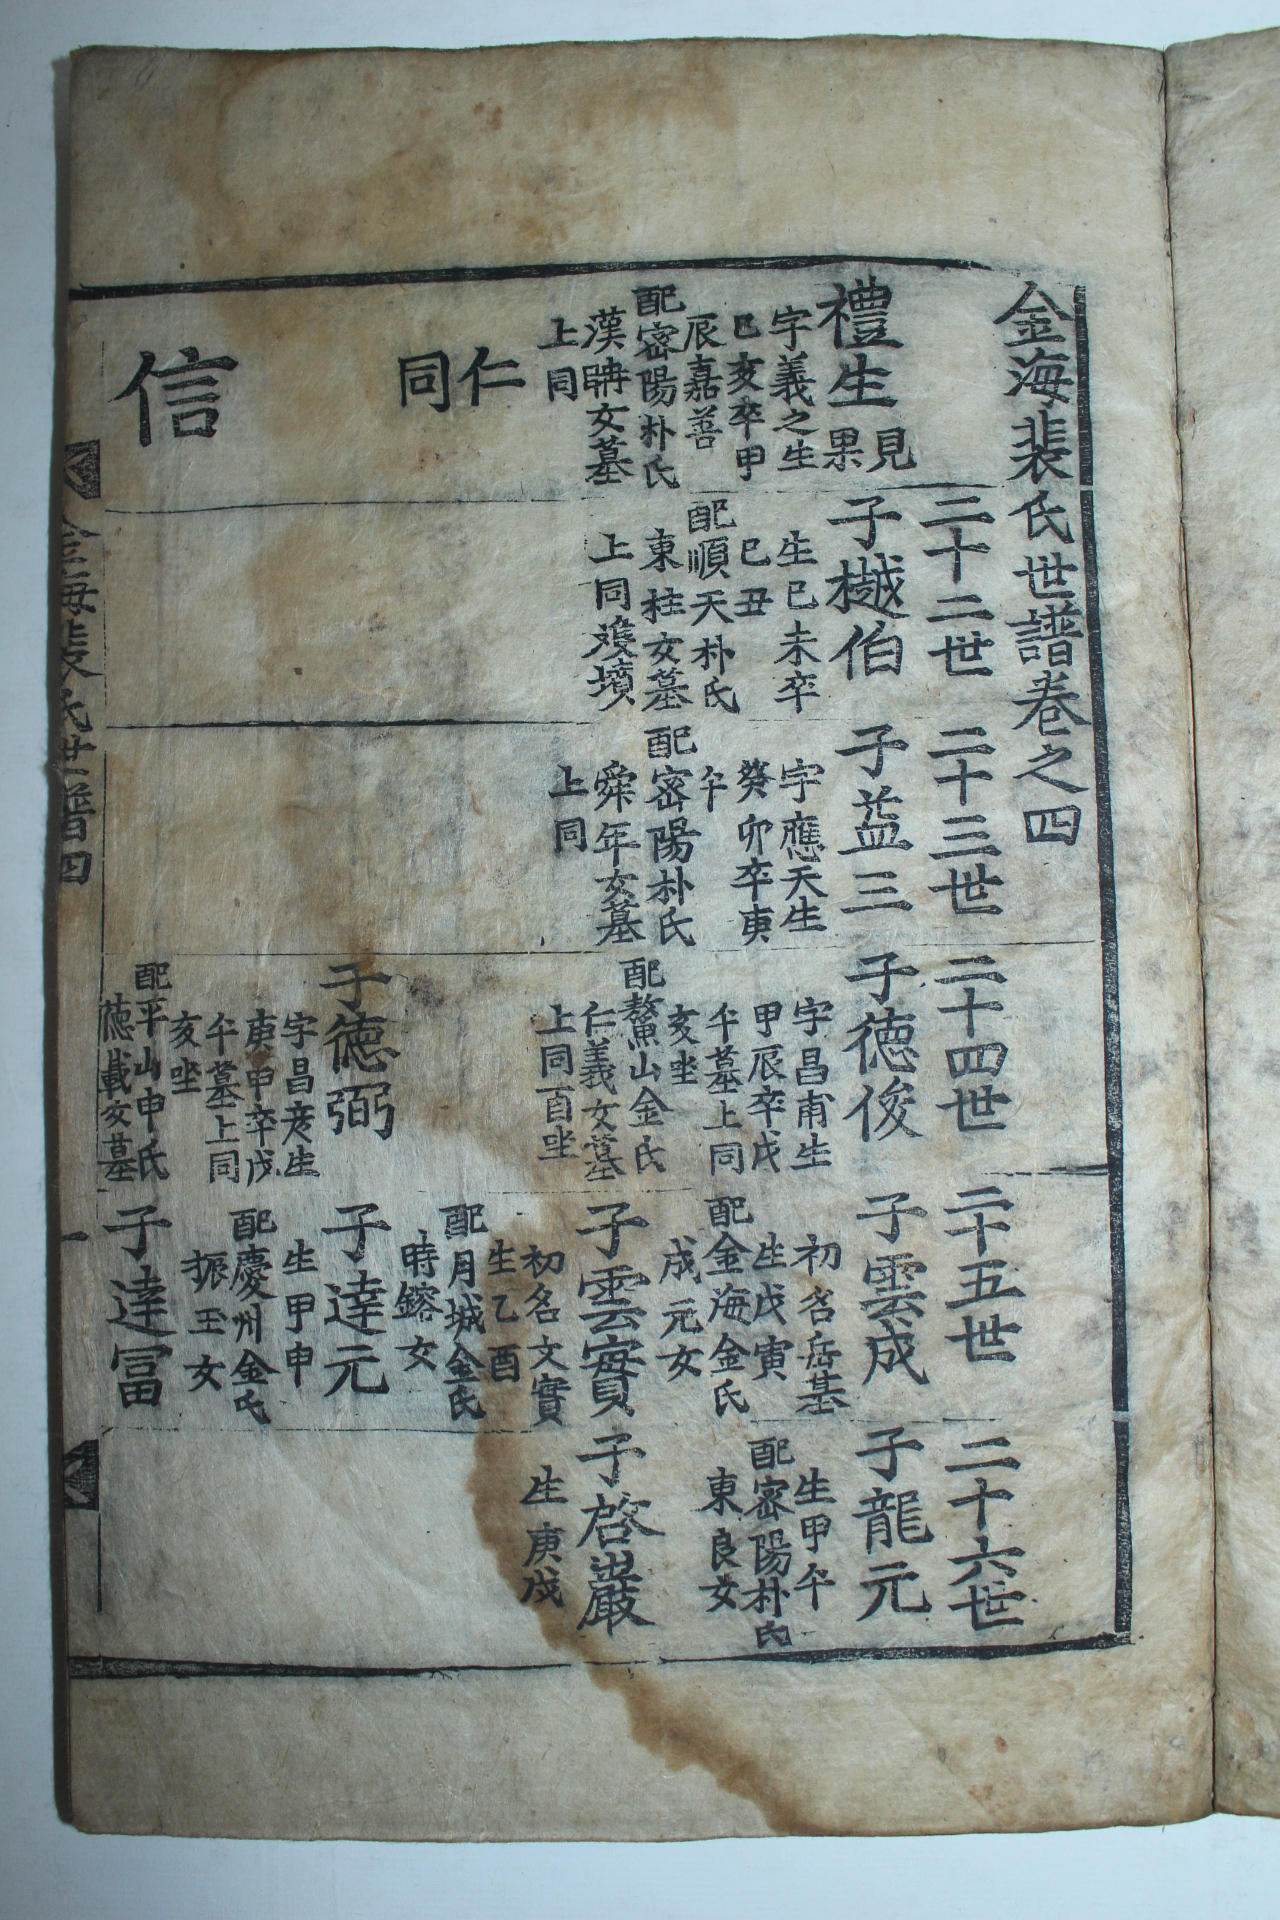 金海裴氏世譜卷之四
二十二世
二十三世
二十四世
二十五世
二十六世
禮生
見
果
字義之生
己亥卒甲
辰嘉善
配密陽朴氏
漢 女墓
上同
仁
同
信
子樾伯
生己未卒
己丑
配順天朴氏
東柱女墓
上同雙墳
子益三
字應天生
癸卯卒庚
午
配密陽朴氏
舜年女墓
上同
子德俊
字昌甫生
甲辰卒戊
午墓上同
亥坐
配鰲山金氏
仁義女墓
上同酉坐
子德弼
字昌彦生
庚申卒戊
午墓上同
亥坐
配平山申氏
德載女墓
子雲成
初名岳基
生戊寅
配金海金氏
成元女
子雲寶
初名文實
生乙酉
配月城金氏
時鎔女
子達元
生甲申
配慶州金氏
振玉女
子達冨
子龍元
生甲午
配密陽朴氏
東良女
子啓巖
生庚戌
金海裴氏世譜四
一